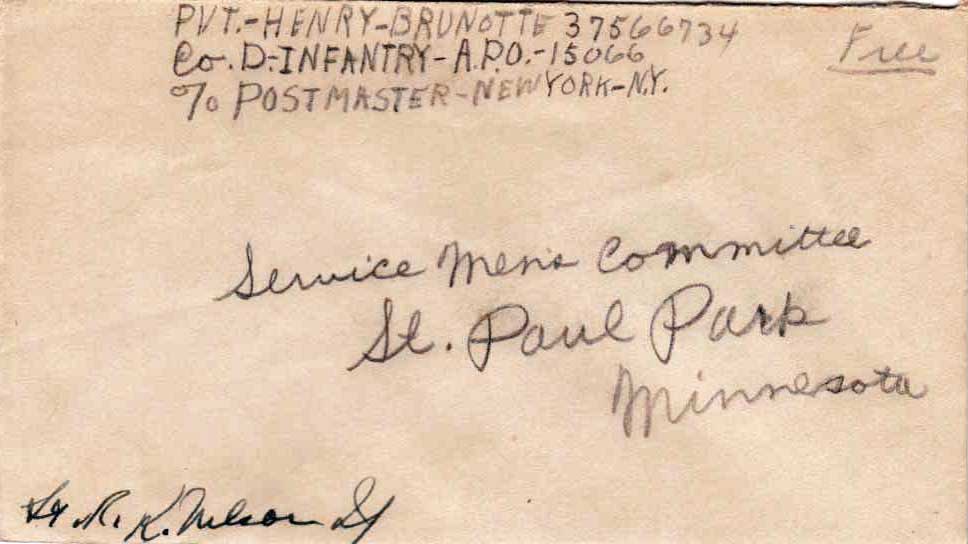 PVT.-HENRY-BRUNOTTE 37566734
Free
Co. D-INFANTRY-A.P.O.-15066
% POSTMASTER-NEW YORK-N.Y.
Service Men's Committee
St. Paul Park
Minnesota
Lt. R. K. Nelson